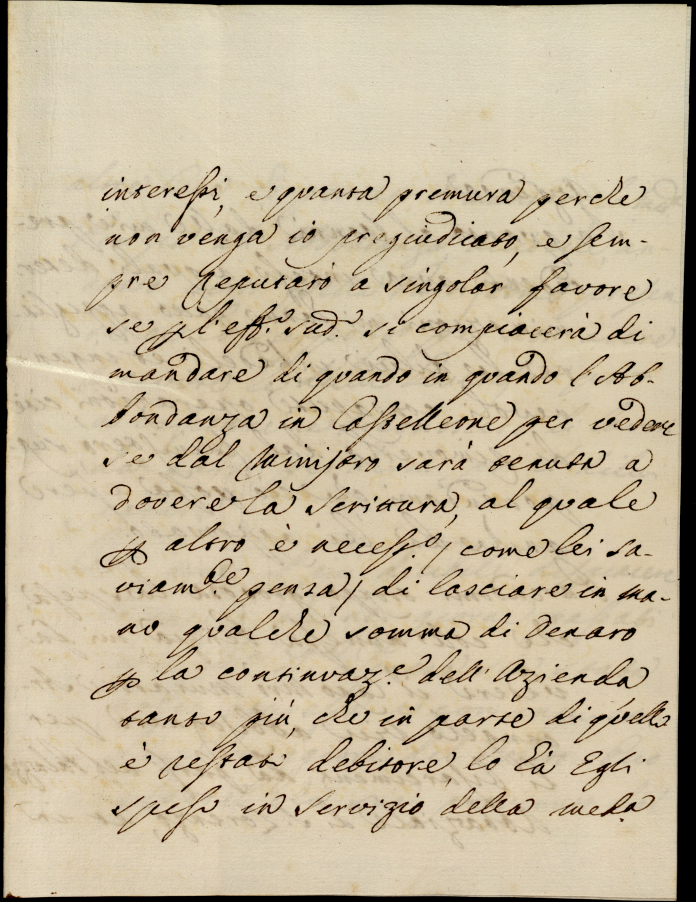 interessi, e quanta premura perche
non venga io pregiudicato, e sem-
pre reputarò a singolar favore
se p l'eff.º sud.º si compiacerà di
mandare di quando in quando l'Ab-
bondanza in Castelleone per vedere
se dal Ministro sarà tenuta a
dovere la scrittura, al quale
p altro è necess.º / come lei sa-
viam.te pensa / di lasciare in ma-
no qualche somma di denaro
p la continuaz.e dell'Azienda
tanto più, che in parte di quella
è restato debitore, lo hà Egli
speso in servizio della meda